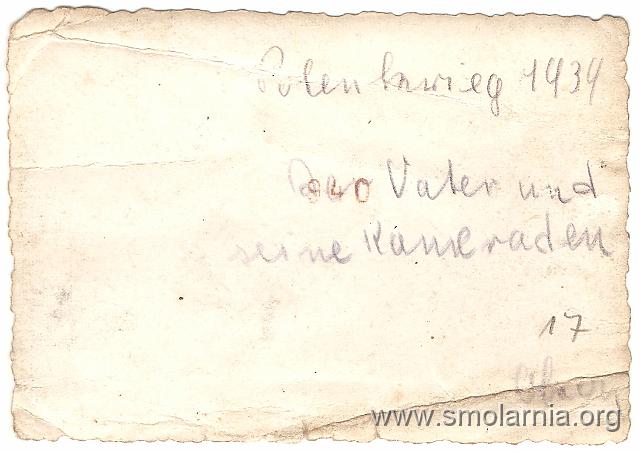 Polenkrieg 1939
Vater und
seine Kameraden
17
www.smolarnia.org